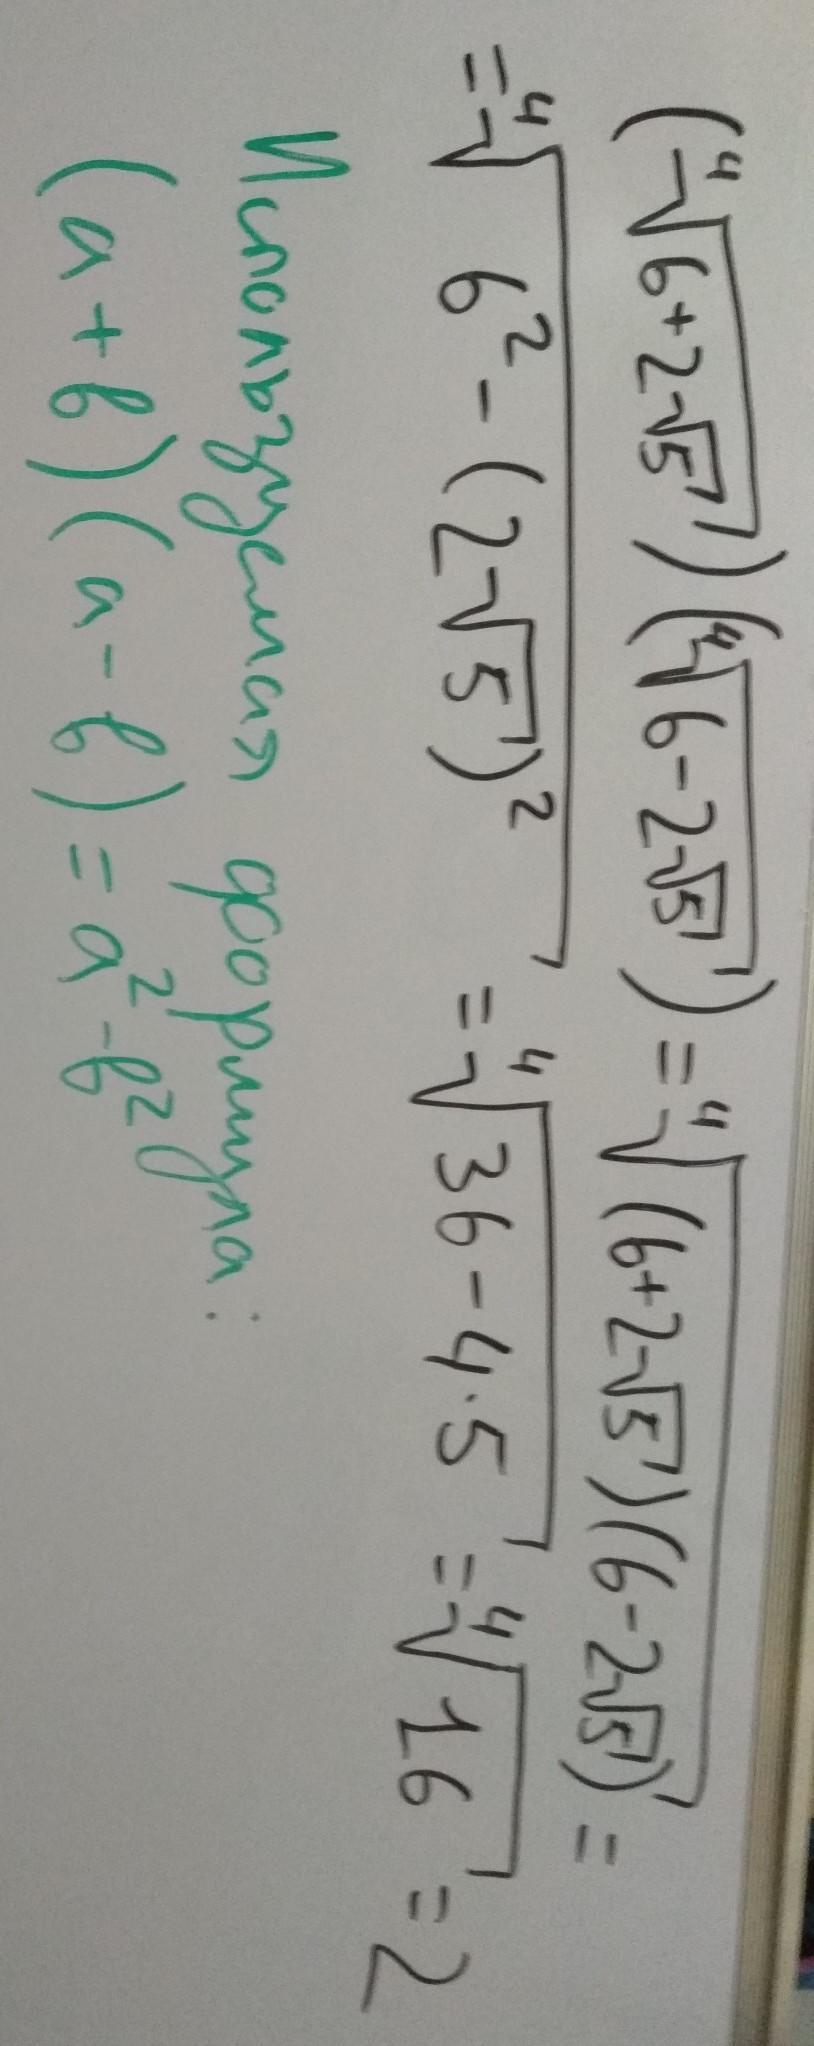 (⁴√(6+2√5))(⁴√(6-2√5)) = ⁴√((6+2√5)(6-2√5)) =
= ⁴√(6² - (2√5)²) = ⁴√(36-4·5) = ⁴√16 = 2
Используемая формула:
(a+b)(a-b) = a²-b²